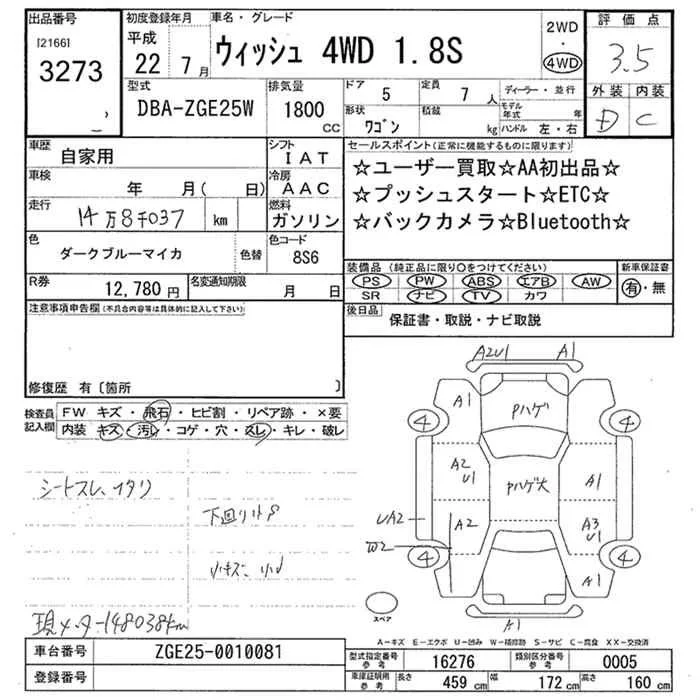 出品番号
[2166]
3273
初度登録年月
平成
22年 7月
車名・グレード
ウィッシュ 4WD 1.8S
2WD
・
4WD
評価点
3.5
外装 内装
D C
型式
DBA-ZGE25W
排気量
1800
CC
ドア
5
定員
7人
形状
ワゴン
積載
kg
ディーラー・並行
モデル年式 年
ハンドル 左・右
車歴
自家用
シフト
IAT
車検
年 月( 日)
冷房
AAC
走行
14万8千037 km
燃料
ガソリン
色
ダークブルーマイカ
色替
色コード
8S6
R券
12,780円
名変通知期限
月 日
セールスポイント(正常に機能するものに限ります)
☆ユーザー買取☆AA初出品☆
☆プッシュスタート☆ETC☆
☆バックカメラ☆Bluetooth☆
装備品(純正品に限り○をつけてください)
PS PW ABS エアB AW
SR ナビ TV カワ
新車保証書
有・無
後日品
保証書・取説・ナビ取説
注意事項申告欄(不具合内容等は具体的に記入して下さい)
修復歴 有〔箇所 〕
検査員記入欄
FW キズ・飛石・ヒビ割・リペア跡・×要
内装 キズ・汚レ・コゲ・穴・スレ・キレ・破レ
シートスレ、イタリ
下回りサビ
小キズ、
現メーター148038km
A2U1 A1
A1 Pハゲ
4 4
A2
U1
Pハゲ大
A1
UA2 A2
A3
U1
W2
4 4
A1
スペア
A1
A-キズ E-エクボ U-凹み W-補修跡 S-サビ C-腐食 XX-交換済
車台番号
ZGE25-0010081
登録番号
型式指定番号 参考
16276
類別区分番号 参考
0005
車庫証明用 参考
長さ 459cm
幅 172cm
高さ 160cm